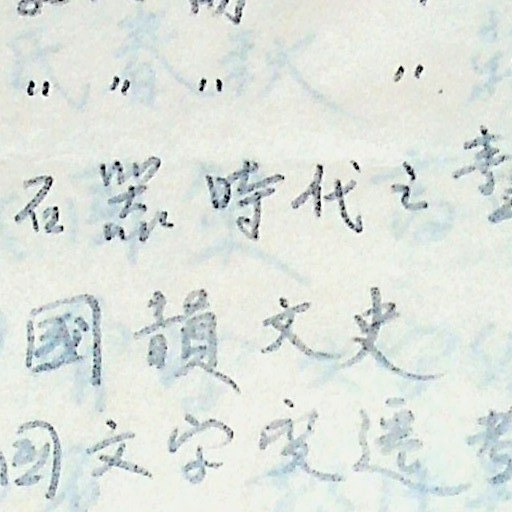 〃 〃 〃 〃
石器時代之
國韻文史
国文字变遷考